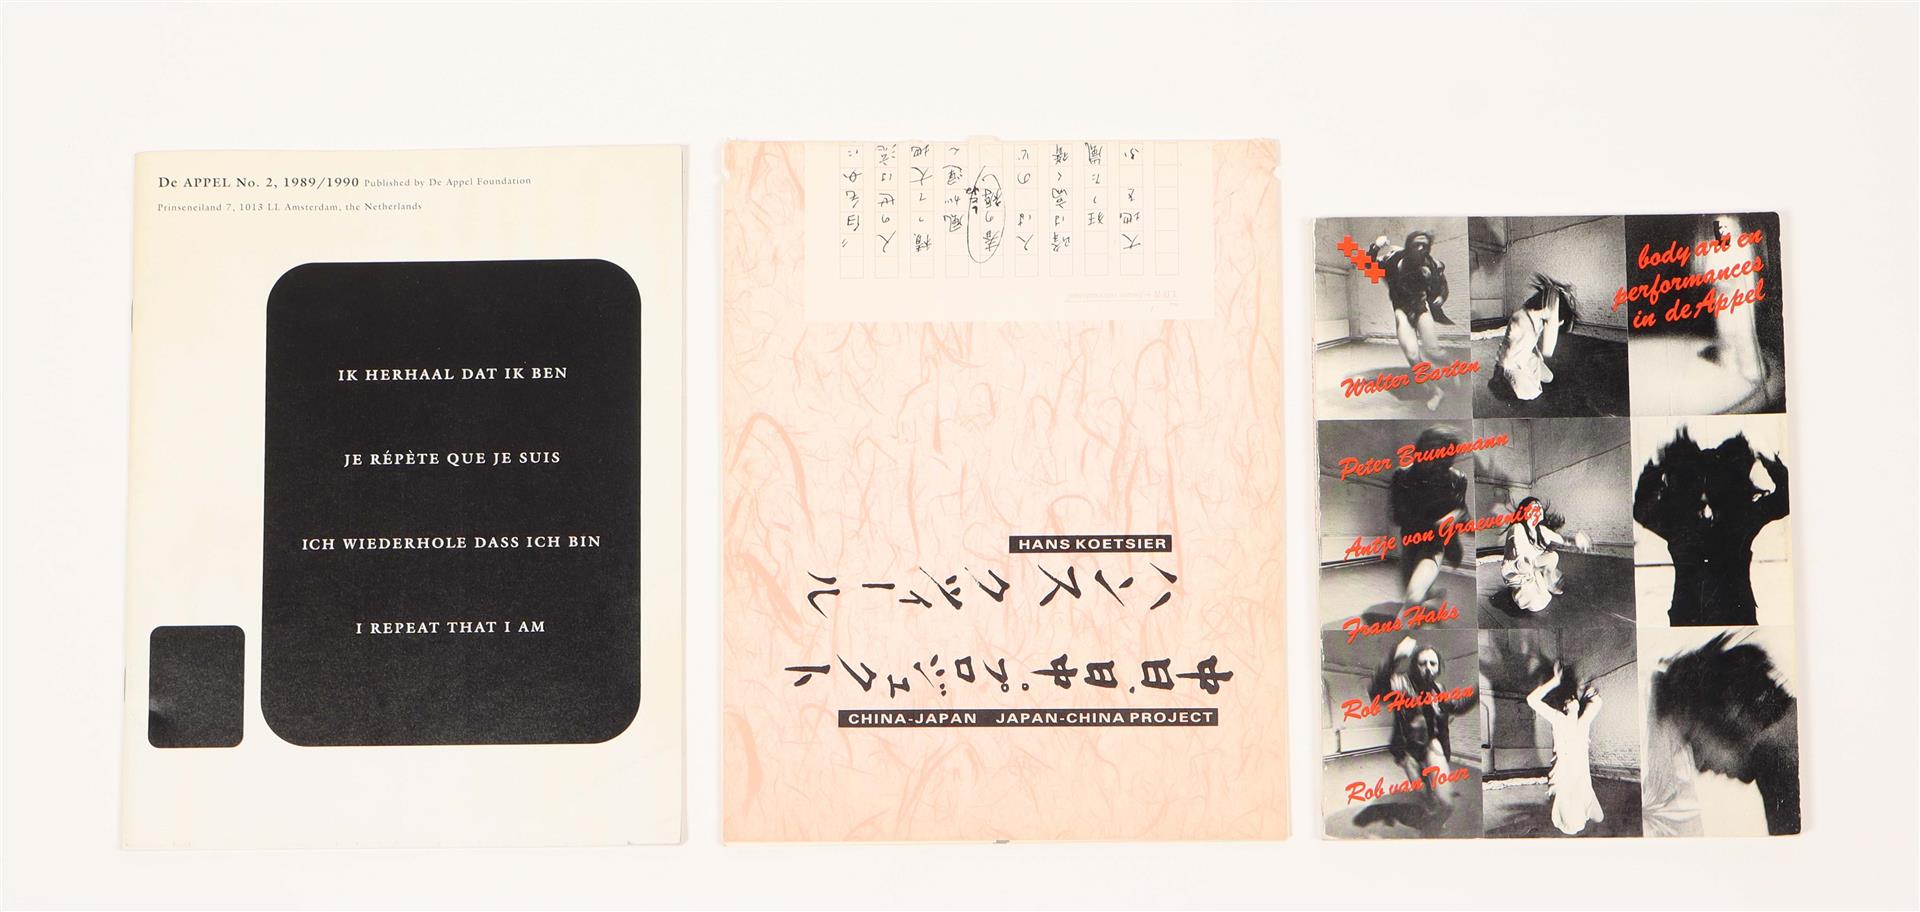 De APPEL No. 2, 1989/1990 Published by De Appel Foundation
Prinseneiland 7, 1013 LL Amsterdam, the Netherlands
IK HERHAAL DAT IK BEN
JE RÉPÈTE QUE JE SUIS
ICH WIEDERHOLE DASS ICH BIN
I REPEAT THAT I AM
HANS KOETSIER
ハンス クツィール
中日、日中プロジェクト
CHINA-JAPAN JAPAN-CHINA PROJECT
body art en
performances
in de Appel
Walter Barten
Peter Brunsmann
Antje von Graevenitz
Frans Haks
Rob Huisman
Rob van Tour